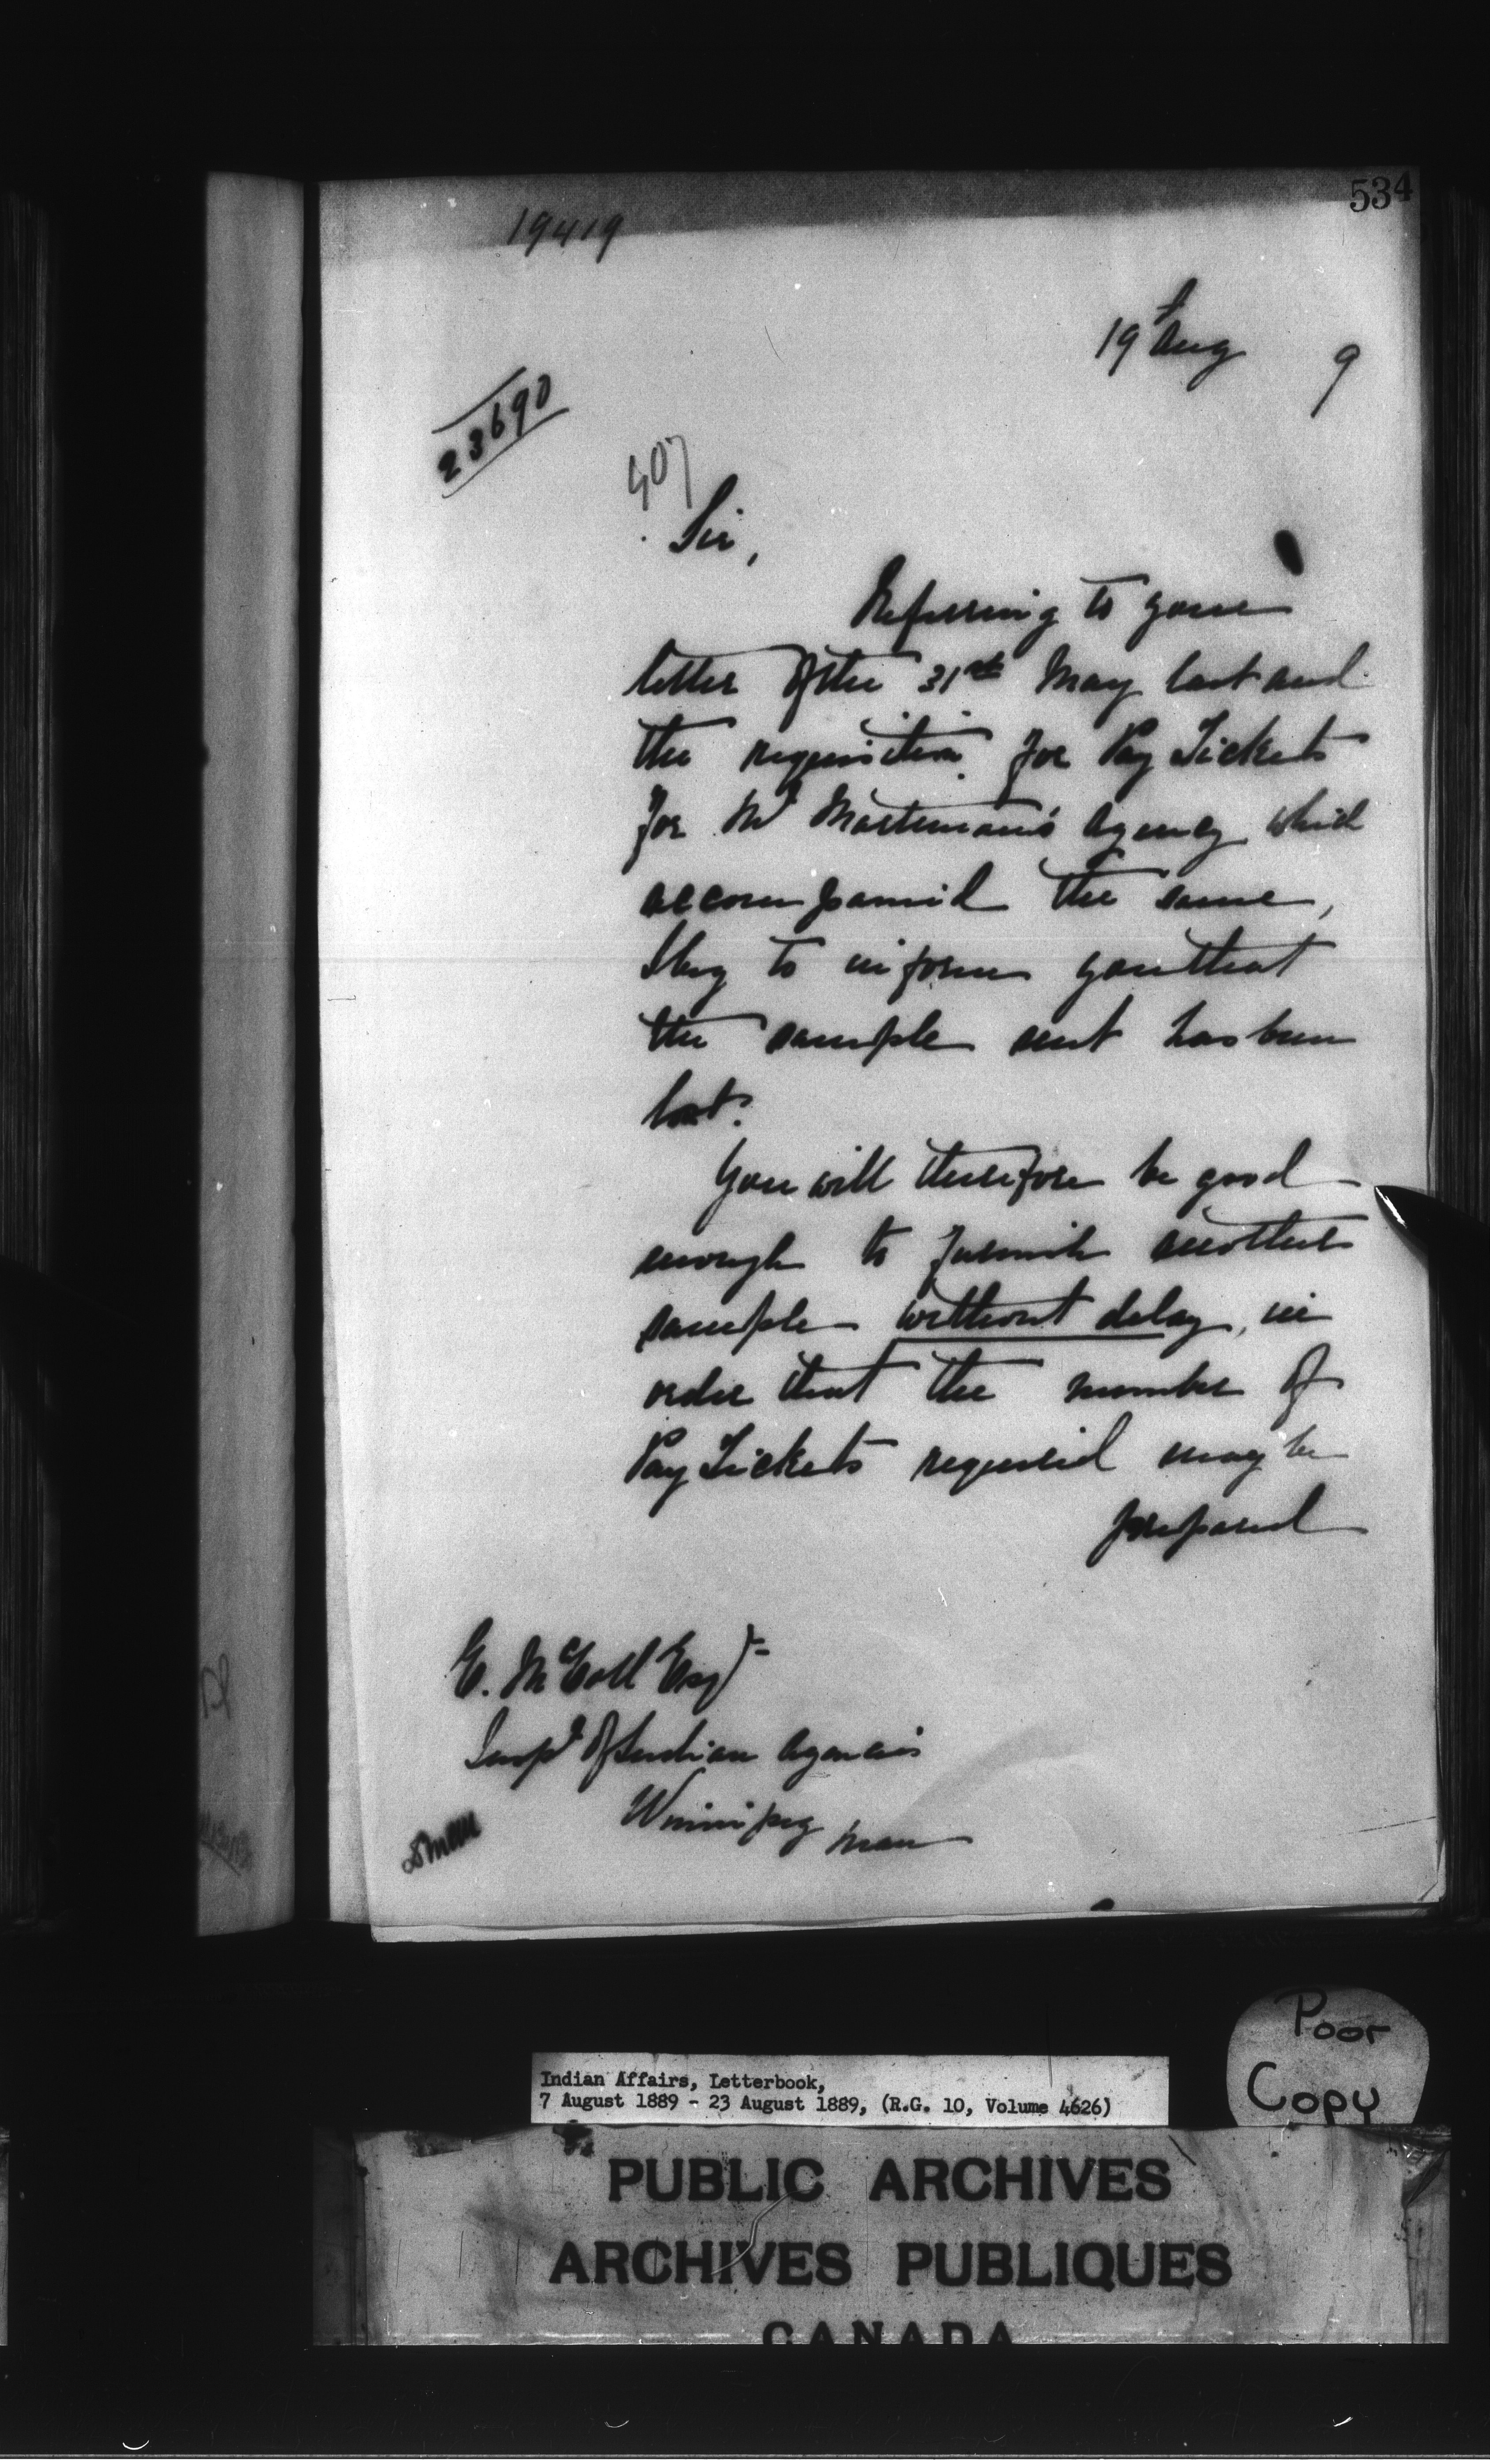 534
19419
19th Aug 9
23690
407
Sir,
Referring to your
letter of the 31st May last and
the requisition for Pay Tickets
for Mr Martineau's Agency which
accompanied the same,
I beg to inform you that
the sample sent has been
lost.
You will therefore be good
enough to furnish another
sample without delay, in
order that the number of
Pay Tickets required may be
prepared
E. McColl Esqr
Inspr of Indian Agencies
Winnipeg Man
Poor
Copy
Indian Affairs, Letterbook,
7 August 1889 - 23 August 1889, (R.G. 10, Volume 4626)
PUBLIC ARCHIVES
ARCHIVES PUBLIQUES
CANADA